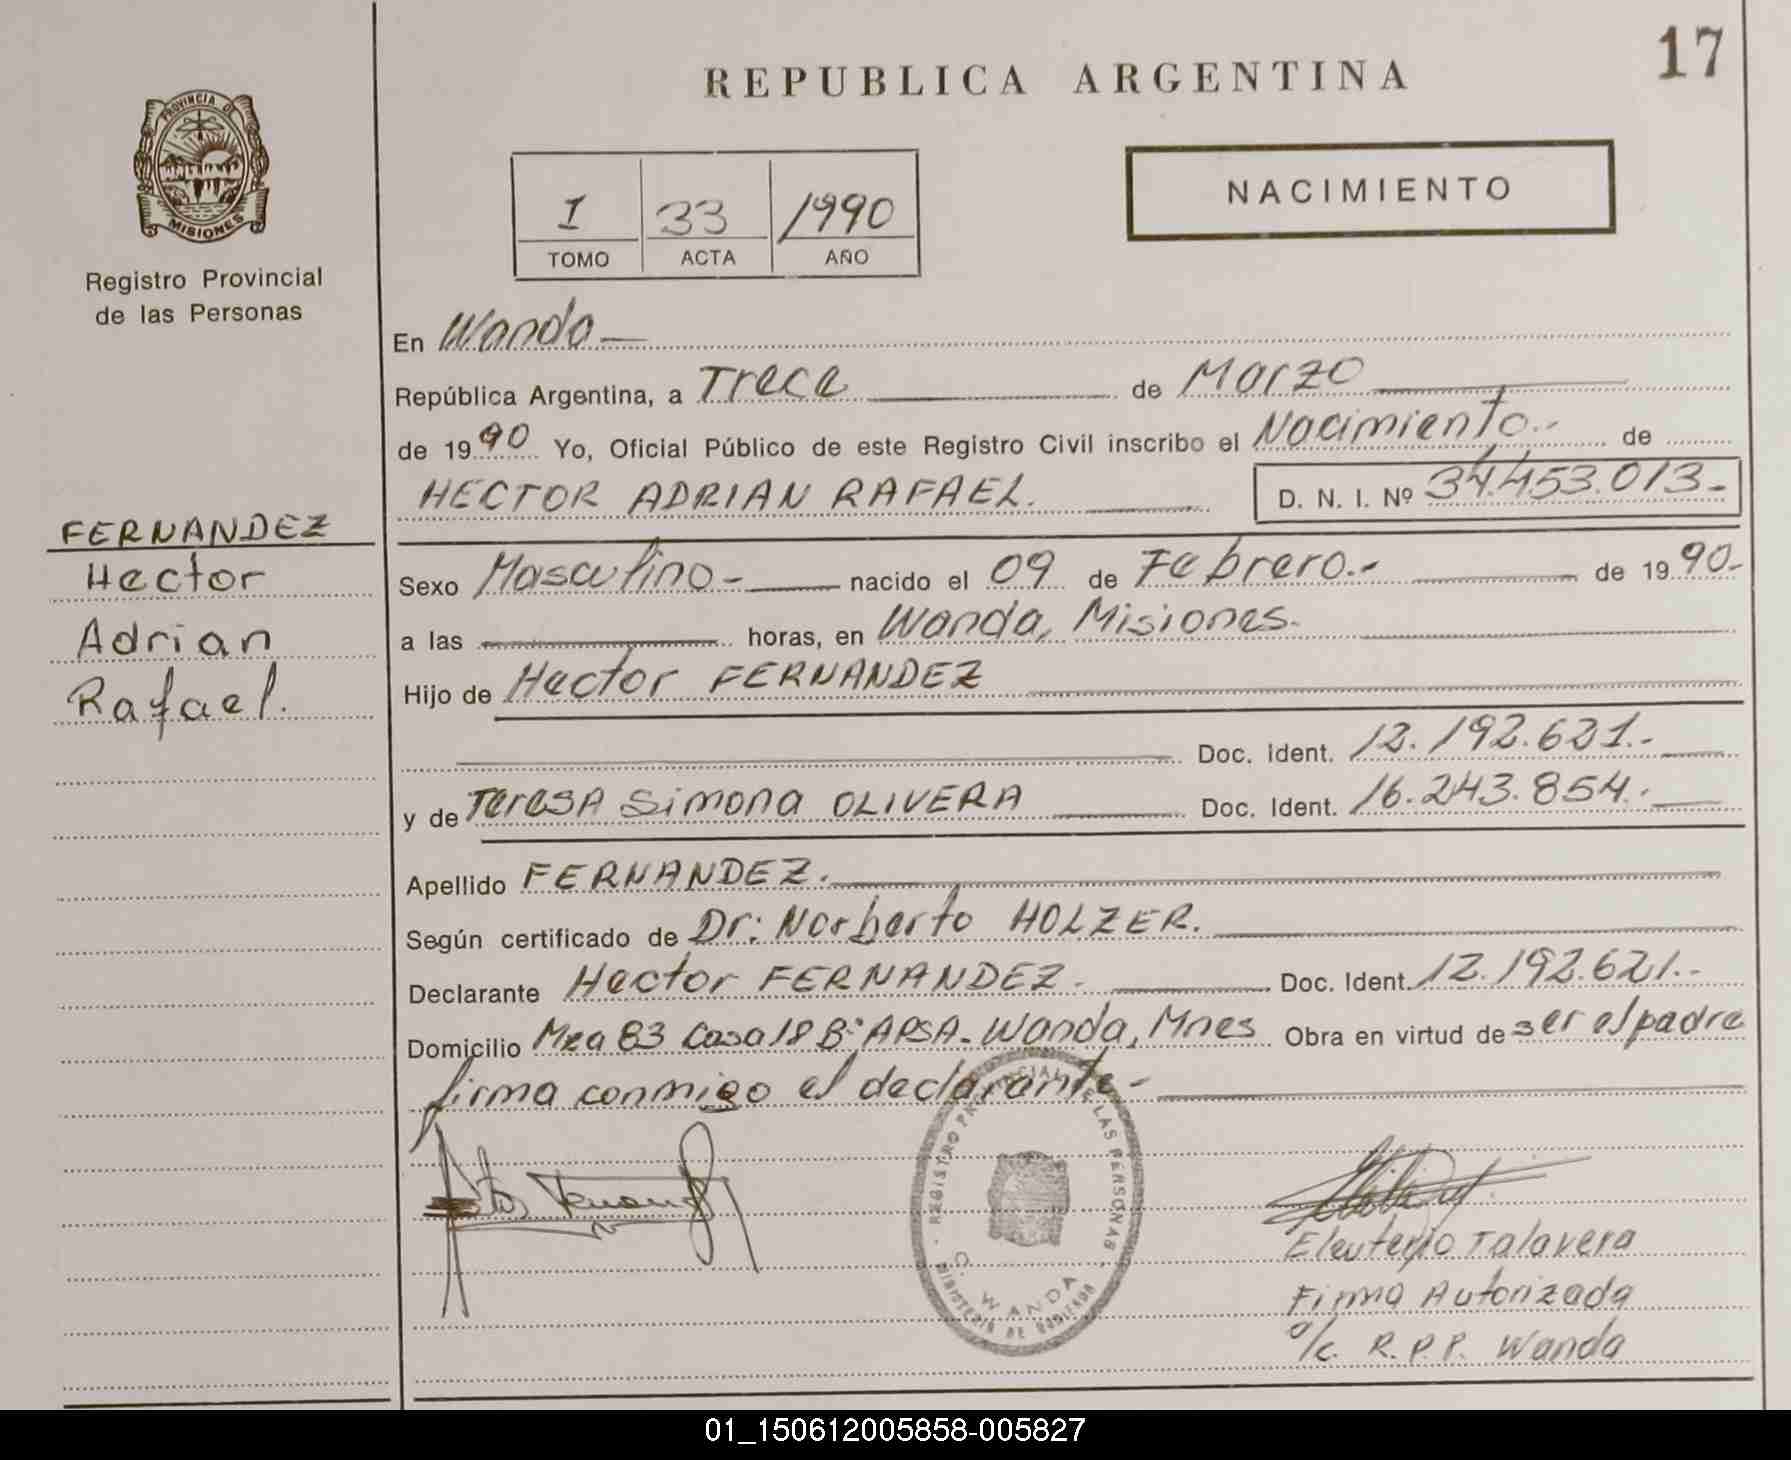 17
REPUBLICA ARGENTINA
PROVINCIA DE
MISIONES
Registro Provincial
de las Personas
NACIMIENTO
I 33 1990
TOMO ACTA AÑO
En Wanda
República Argentina, a Trece de Marzo
de 1990 Yo, Oficial Público de este Registro Civil inscribo el Nacimiento.- de
HECTOR ADRIAN RAFAEL. D. N. I. Nº 34.453.013.-
FERNANDEZ
Hector
Adrian
Rafael.
Sexo Masculino.- nacido el 09 de Febrero.- de 1990.-
a las horas, en Wanda, Misiones.
Hijo de Hector FERNANDEZ
Doc. Ident. 12.192.621.-
y de TereSA Simona OLIVERA Doc. Ident. 16.243.854.-
Apellido FERNANDEZ.
Según certificado de Dr: Norberto HOLZER.
Declarante Hector FERNANDEZ. Doc. Ident. 12.192.621.-
Domicilio Mza 83 Casa 18 Bº APSA. Wanda, Mnes Obra en virtud de ser el padre
firma conmigo el declarante.-
REGISTRO PROVINCIAL DE LAS PERSONAS
WANDA
MINISTERIO DE GOBIERNO
Eleuterio Talavera
Firma Autorizada
a/c. R.P.P. Wanda
01_150612005858-005827